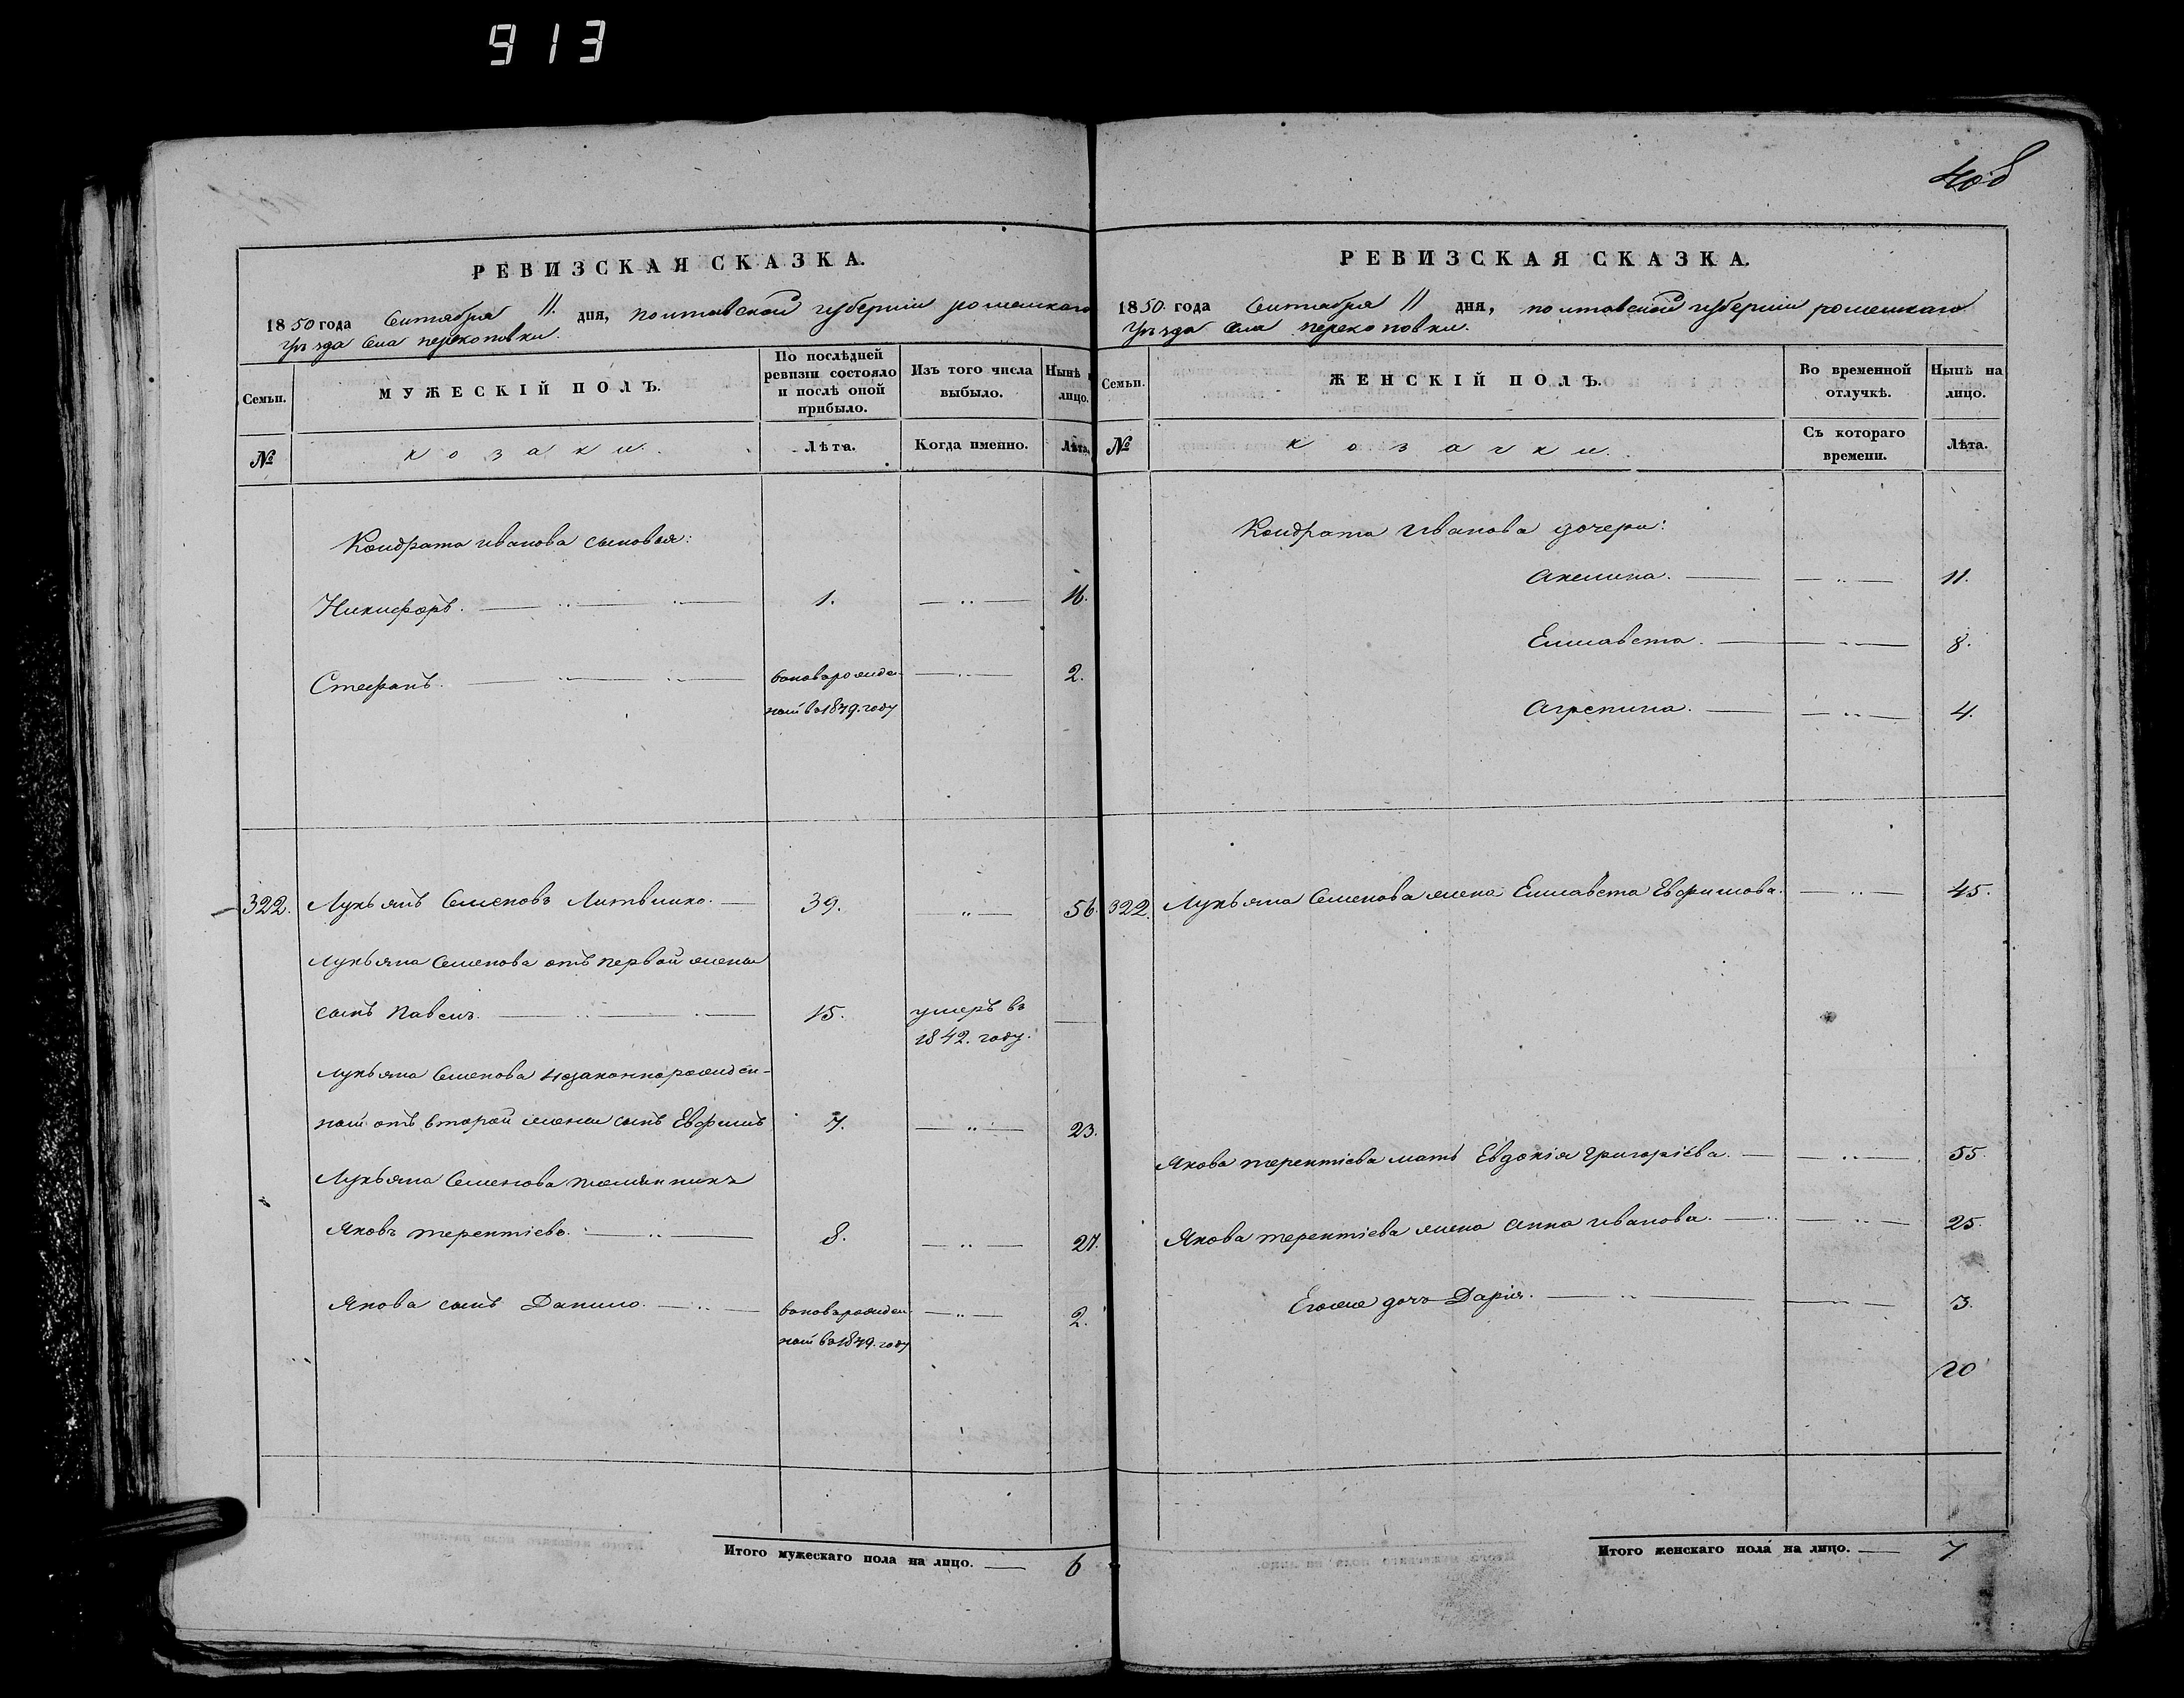 913
408
РЕВИЗСКАЯ СКАЗКА.
1850 года Сентября 11. дня, полтавской губерніи роменскаго
уѣзда села перекоповки.
Семьи.
МУЖЕСКІЙ ПОЛЪ.
По послѣдней
ревизіи состояло
и послѣ оной
прибыло.
Изъ того числа
выбыло.
Нынѣ
лицо.
№
козаки.
Лѣта.
Когда именно.
Лѣта.
Кондрата иванова сыновья:
Никифоръ. 1. 16.
Стефанъ. вновьрожден- 2.
ной в 1849. году
322. Лукьянъ Семеновъ Литвинко. 39. 56.
Лукьяна Семенова отъ первой жены
сынъ Павелъ. 15. умеръ въ
1842. году.
Лукьяна Семенова незаконнорожден-
ной отъ второй жены сынъ Евфимъ 7. 23.
Лукьяна Семенова племянникъ
Яковъ терентіевъ. 8. 27.
Якова сынъ Данило. вновьрожден- 2.
ной в 1849. году
Итого мужескаго пола на лицо. 6
РЕВИЗСКАЯ СКАЗКА.
1850 года Сентября 11 дня, полтавской губерніи роменскаго
уѣзда села перекоповки.
Семьи.
ЖЕНСКІЙ ПОЛЪ.
Во временной
отлучкѣ.
Нынѣ на
лицо.
№
козачки.
Съ котораго
времени.
Лѣта.
Кондрата Иванова дочери:
Акилина. 11.
Елисавета. 8.
Агрепина. 4.
322. Лукьяна Семенова жена Елисавета Евфимова. 45.
Якова терентіева мать Евдокія Григоріева. 55
Якова терентіева жена Анна иванова. 25.
Егоже дочь Дарія. 3.
Итого женскаго пола на лицо. 7